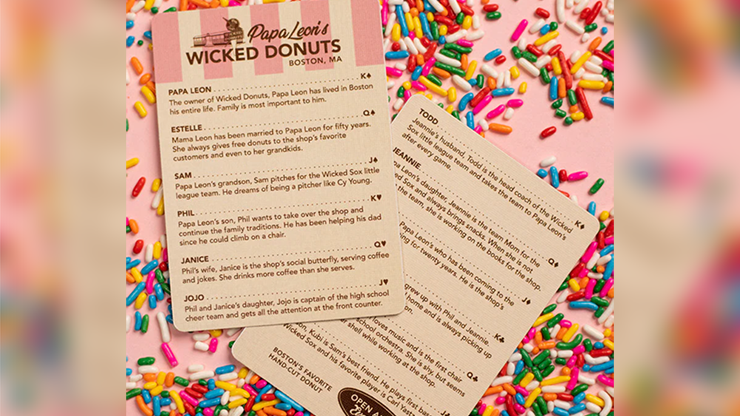 Papa Leon's
WICKED DONUTS
BOSTON, MA
PAPA LEON K♠
The owner of Wicked Donuts, Papa Leon has lived in Boston
his entire life. Family is most important to him.
ESTELLE Q♠
Mama Leon has been married to Papa Leon for fifty years.
She always gives free donuts to the shop's favorite
customers and even to her grandkids.
SAM J♠
Papa Leon's grandson, Sam pitches for the Wicked Sox little
league team. He dreams of being a pitcher like Cy Young.
PHIL K♥
Papa Leon's son, Phil wants to take over the shop and
continue the family traditions. He has been helping his dad
since he could climb on a chair.
JANICE Q♥
Phil's wife, Janice is the shop's social butterfly, serving coffee
and jokes. She drinks more coffee than she serves.
JOJO J♥
Phil and Janice's daughter, Jojo is captain of the high school
cheer team and gets all the attention at the front counter.
TODD K♦
Jeannie's husband, Todd is the head coach of the Wicked
Sox little league team and takes the team to Papa Leon's
after every game.
JEANNIE Q♦
Leon's daughter, Jeannie is the team Mom for the
Sox and always brings snacks. When she is not
the team, she is working on the books for the shop.
J♦
Papa Leon's who has been coming to the
for twenty years. He is the shop's
K♣
grew up with Phil and Jeannie.
home and is always picking up
Q♣
loves music and is the first chair
school orchestra. She is shy, but seems
shell while working at the shop.
J♣
Kubi is Sam's best friend. He plays first
Wicked Sox and his favorite player is Carl
BOSTON'S FAVORITE
HAND-CUT DONUT
OPEN